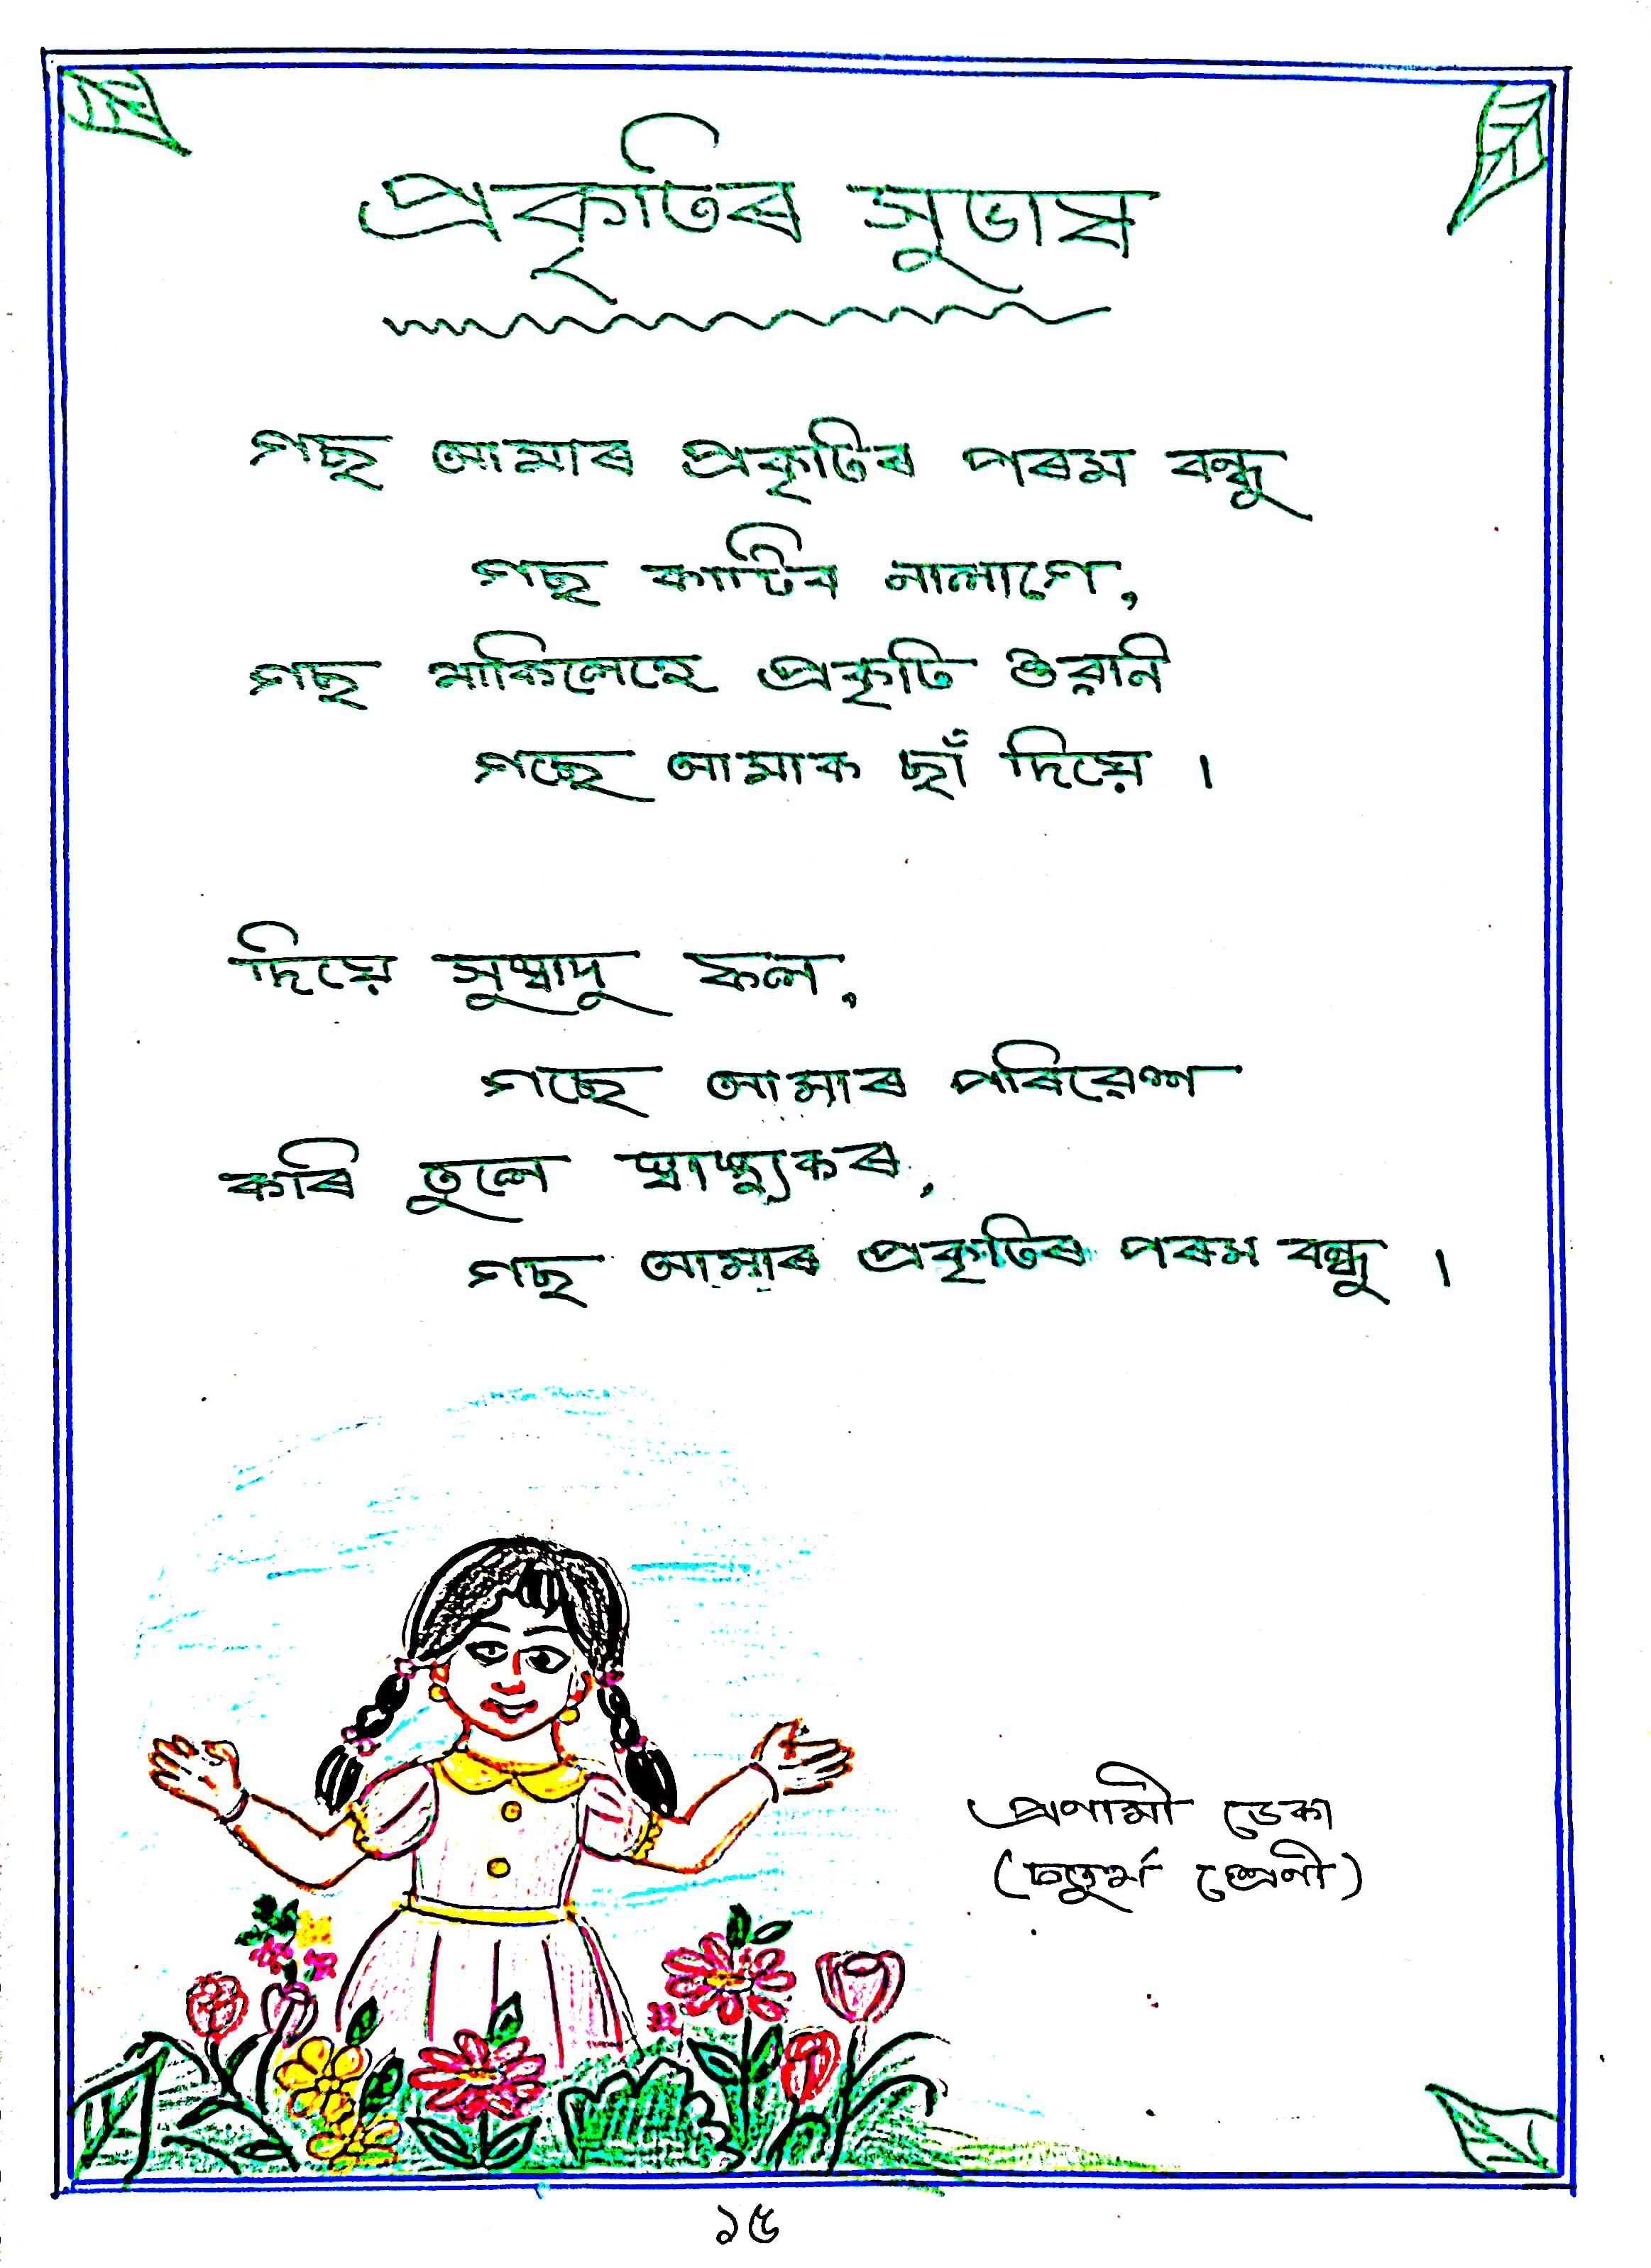 প্ৰকৃতিৰ সুভাষ
গছ আমাৰ প্ৰকৃতিৰ পৰম বন্ধু
গছ কাটিব নালাগে,
গছ থাকিলেহে প্ৰকৃতি শুৱনি
গছে আমাক ছাঁ দিয়ে ।
দিয়ে সুস্বাদু ফল,
গছে আমাৰ পৰিৱেশ
কৰি তুলে স্বাস্থ্যকৰ,
গছ আমাৰ প্ৰকৃতিৰ পৰম বন্ধু ।
প্ৰণামী ডেকা
(চতুৰ্থ শ্ৰেণী)
১৫